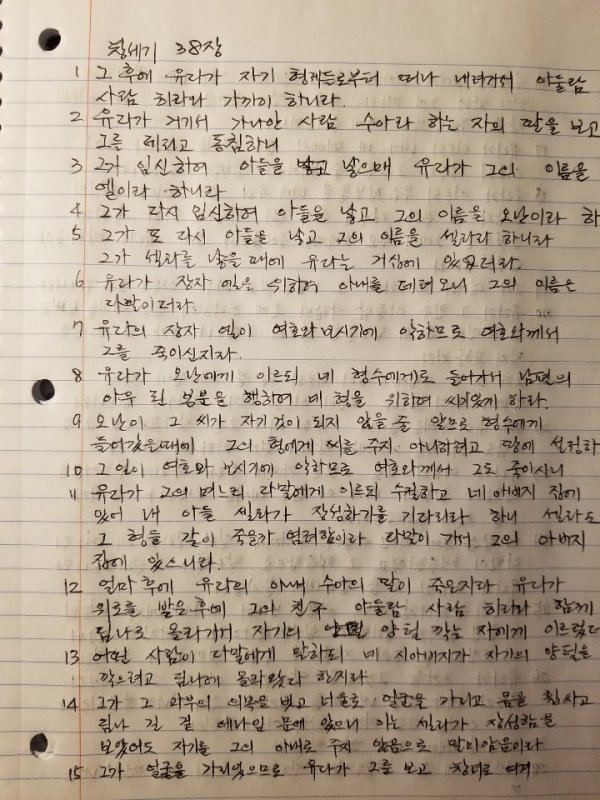 창세기 38장
1 그 후에 유다가 자기 형제들로부터 떠나 내려가서 아둘람
사람 히라와 가까이 하니라.
2 유다가 거기서 가나안 사람 수아라 하는 자의 딸을 보고
그를 데리고 동침하니
3 그가 임신하여 아들을 낳고 낳으매 유다가 그의 이름을
엘이라 하니라
4 그가 다시 임신하여 아들을 낳고 그의 이름을 오난이라 하
5 그가 또 다시 아들을 낳고 그의 이름을 셀라라 하니라
그가 셀라를 낳을 때에 유다는 거십에 있었더라.
6 유다가 장자 엘을 위하여 아내를 데려오니 그의 이름은
다말이더라.
7 유다의 장자 엘이 여호와 보시기에 악하므로 여호와께서
그를 죽이신지라.
8 유다가 오난에게 이르되 네 형수에게로 들어가서 남편의
아우 된 본분을 행하여 네 형을 위하여 씨가있게 하라.
9 오난이 그 씨가 자기 것이 되지 않을 줄 알므로 형수에게
들어갔을때에 그의 형에게 씨를 주지 아니하려고 땅에 설정하
10 그 일이 여호와 보시기에 악하므로 여호와께서 그도 죽이시니
11 유다가 그의 며느리 다말에게 이르되 수절하고 네 아버지 집에
있어 내 아들 셀라가 장성하기를 기다리라 하니 셀라도
그 형들 같이 죽을까 염려함이라 다말이 가서 그의 아버지
집에 있으니라.
12 얼마 후에 유다의 아내 수아의 딸이 죽은지라 유다가
위로를 받은 후에 그의 친구 아둘람 사람 히라와 함께
딤나로 올라가서 자기의 양털 깎는 자에게 이르렀더
13 어떤 사람이 다말에게 말하되 네 시아버지가 자기의 양털을
깎으려고 딤나에 올라왔다 한지라
14 그가 그 과부의 의복을 벗고 너울로 얼굴을 가리고 몸을 휩싸고
딤나 길 곁 에나임 문에 앉으니 이는 셀라가 장성함을
보았어도 자기를 그의 아내로 주지 않음으로 말미암음이라
15 그가 얼굴을 가리었으므로 유다가 그를 보고 창녀로 여겨